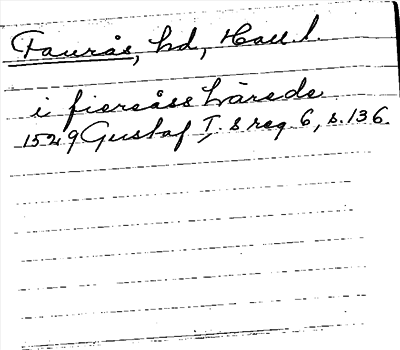 Faurås, hd, Hall.l.
i fieråss härede
1529 Gustaf I:s reg. 6, s. 136.